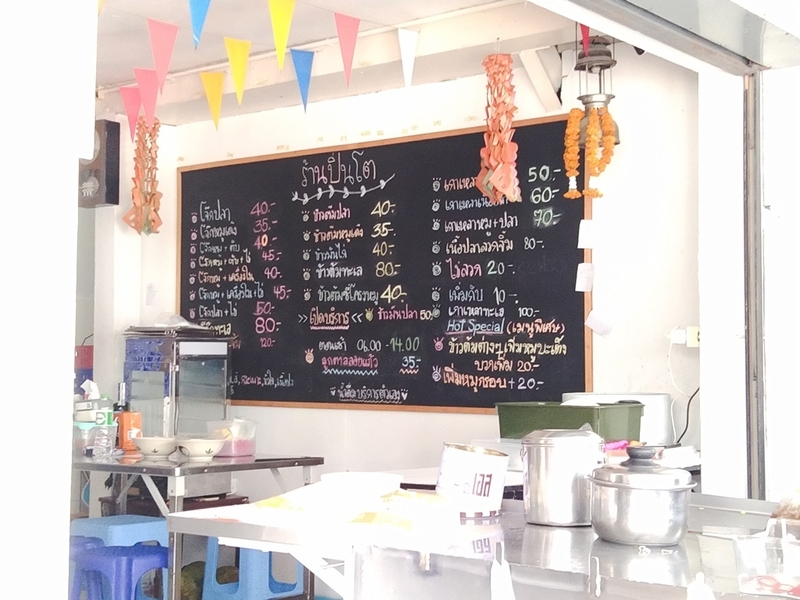 ร้านปิ่นโต
โจ๊กปลา 40.-
โจ๊กหมูแดง 35.-
โจ๊กหมู + ตับ 40.-
โจ๊กหมู + ตับ + ไข่ 45.-
โจ๊กหมู + เครื่องใน 40.-
โจ๊กหมู + เครื่องใน + ไข่ 45.-
โจ๊กปลา + ไข่ 50.-
80.-
120.-
ข้าวต้มปลา 40.-
ข้าวต้มหมูแดง 35.-
ข้าวมันไก่ 40.-
ข้าวต้มทะเล 80.-
ข้าวต้มซี่โครงหมู 40.-
ข้าวมันปลา 50.-
>> เปิดบริการ <<
ตอนเช้า 06.00 - 14.00
ลูกตาลลอยแก้ว 35.-
เกาเหลา 50.-
เกาเหลา 60.-
เกาเหลาหมู + ปลา 70.-
เนื้อปลาลวกจิ้ม 80.-
ไข่ลวก 20.-
เพิ่มตับ 10.-
เกาเหลาทะเล 100.-
Hot Special (เมนูพิเศษ)
ข้าวต้มต่างๆ เพิ่มหมูบะเต็ง
บวกเพิ่ม 20.-
เพิ่มหมูกรอบ + 20.-